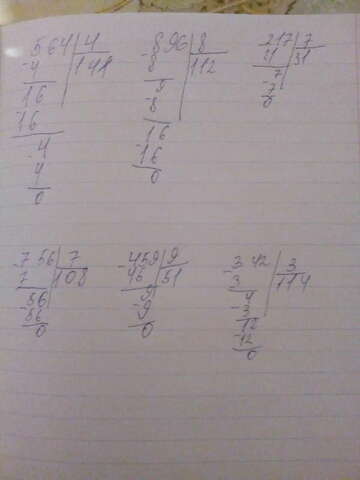 564 | 4
-4 | 141
16
16
-4
4
0
-896 | 8
8 | 112
9
-8
16
-16
0
217 | 7
21 | 31
7
-7
0
-756 | 7
7 | 108
56
-56
0
-459 | 9
45 | 51
9
-9
0
-342 | 3
3 | 114
4
-3
12
-12
0